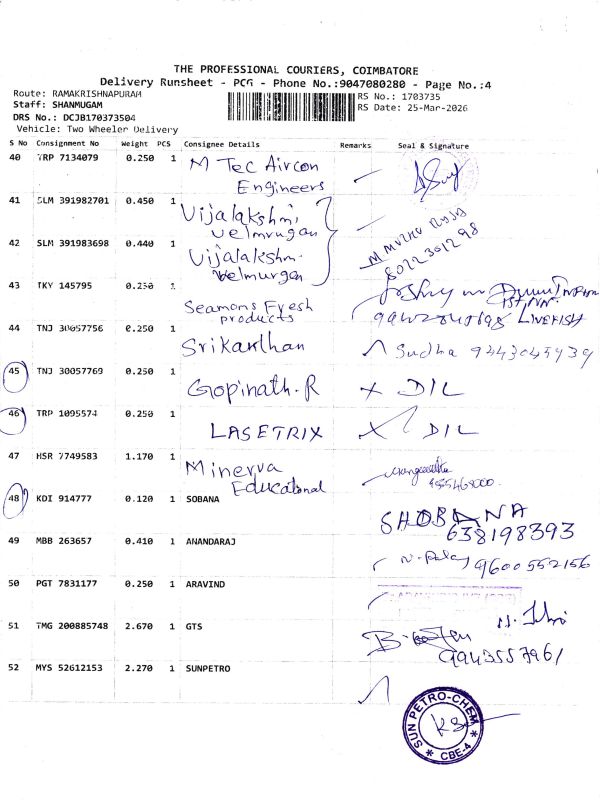 THE PROFESSIONAL COURIERS, COIMBATORE
Delivery Runsheet - PCG - Phone No.:9047080280 - Page No.:4
Route: RAMAKRISHNAPURAM
Staff: SHANMUGAM
DRS No.: DCJB170373504
Vehicle: Two Wheeler Delivery
RS No.: 1703735
RS Date: 25-Mar-2026
S No Consignment No Weight PCS Consignee Details Remarks Seal & Signature
40 TRP 7134079 0.250 1 M Tec Aircon
Engineers
41 SLM 391982701 0.450 1 Vijalakshmi
Velmurugan
8022301298
42 SLM 391983698 0.440 1 Vijalakshmi
Velmurgan
43 TKY 145795 0.250 1 Seamons Fresh
products
LIVEFISH
44 TNJ 30057756 0.250 1 Srikanthan Sudha 9443045939
45 TNJ 30057769 0.250 1 Gopinath.R X DIL
46 TRP 1095574 0.250 1 LASETRIX X DIL
47 HSR 7749583 1.170 1 Minerva
Educational
48 KDI 914777 0.120 1 SOBANA SHOBANA
638198393
49 MBB 263657 0.410 1 ANANDARAJ 9600552156
50 PGT 7831177 0.250 1 ARAVIND
51 TMG 200885748 2.670 1 GTS
9943557961
52 MYS 52612153 2.270 1 SUNPETRO
SUN PETRO-CHEM
CBE-4